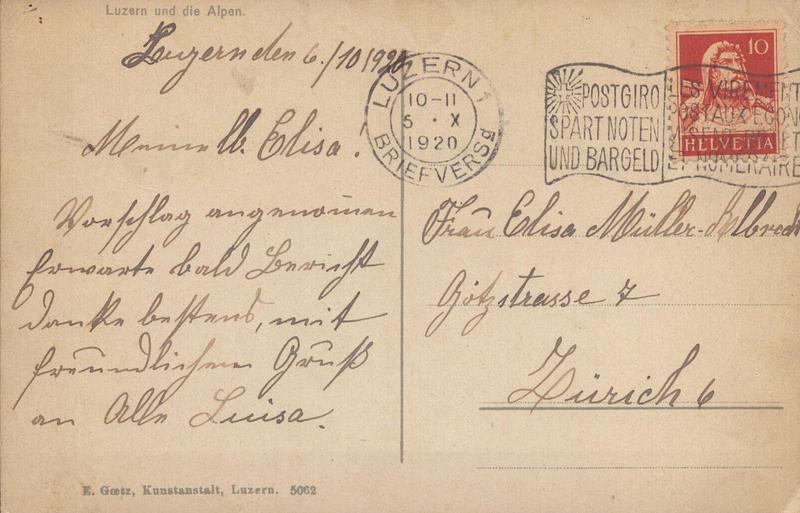 Luzern und die Alpen.
Luzern den 6./10 1920
Meine lb. Elisa!
Vorschlag angenommen
Erwarte bald Bericht
danke bestens, mit
freundlichem Gruß
an Alle Luisa.
E. Gœtz, Kunstanstalt, Luzern. 5062
LUZERN 1
10-11
5 · X
1920
BRIEFVERSd
POSTGIRO
SPART NOTEN
UND BARGELD
LES VIREMENT
POSTAUX ECON
ET NUMERAIRE
10
HELVETIA
Frau Elisa Müller-Albrecht
Götzstrasse 7
Zürich 6